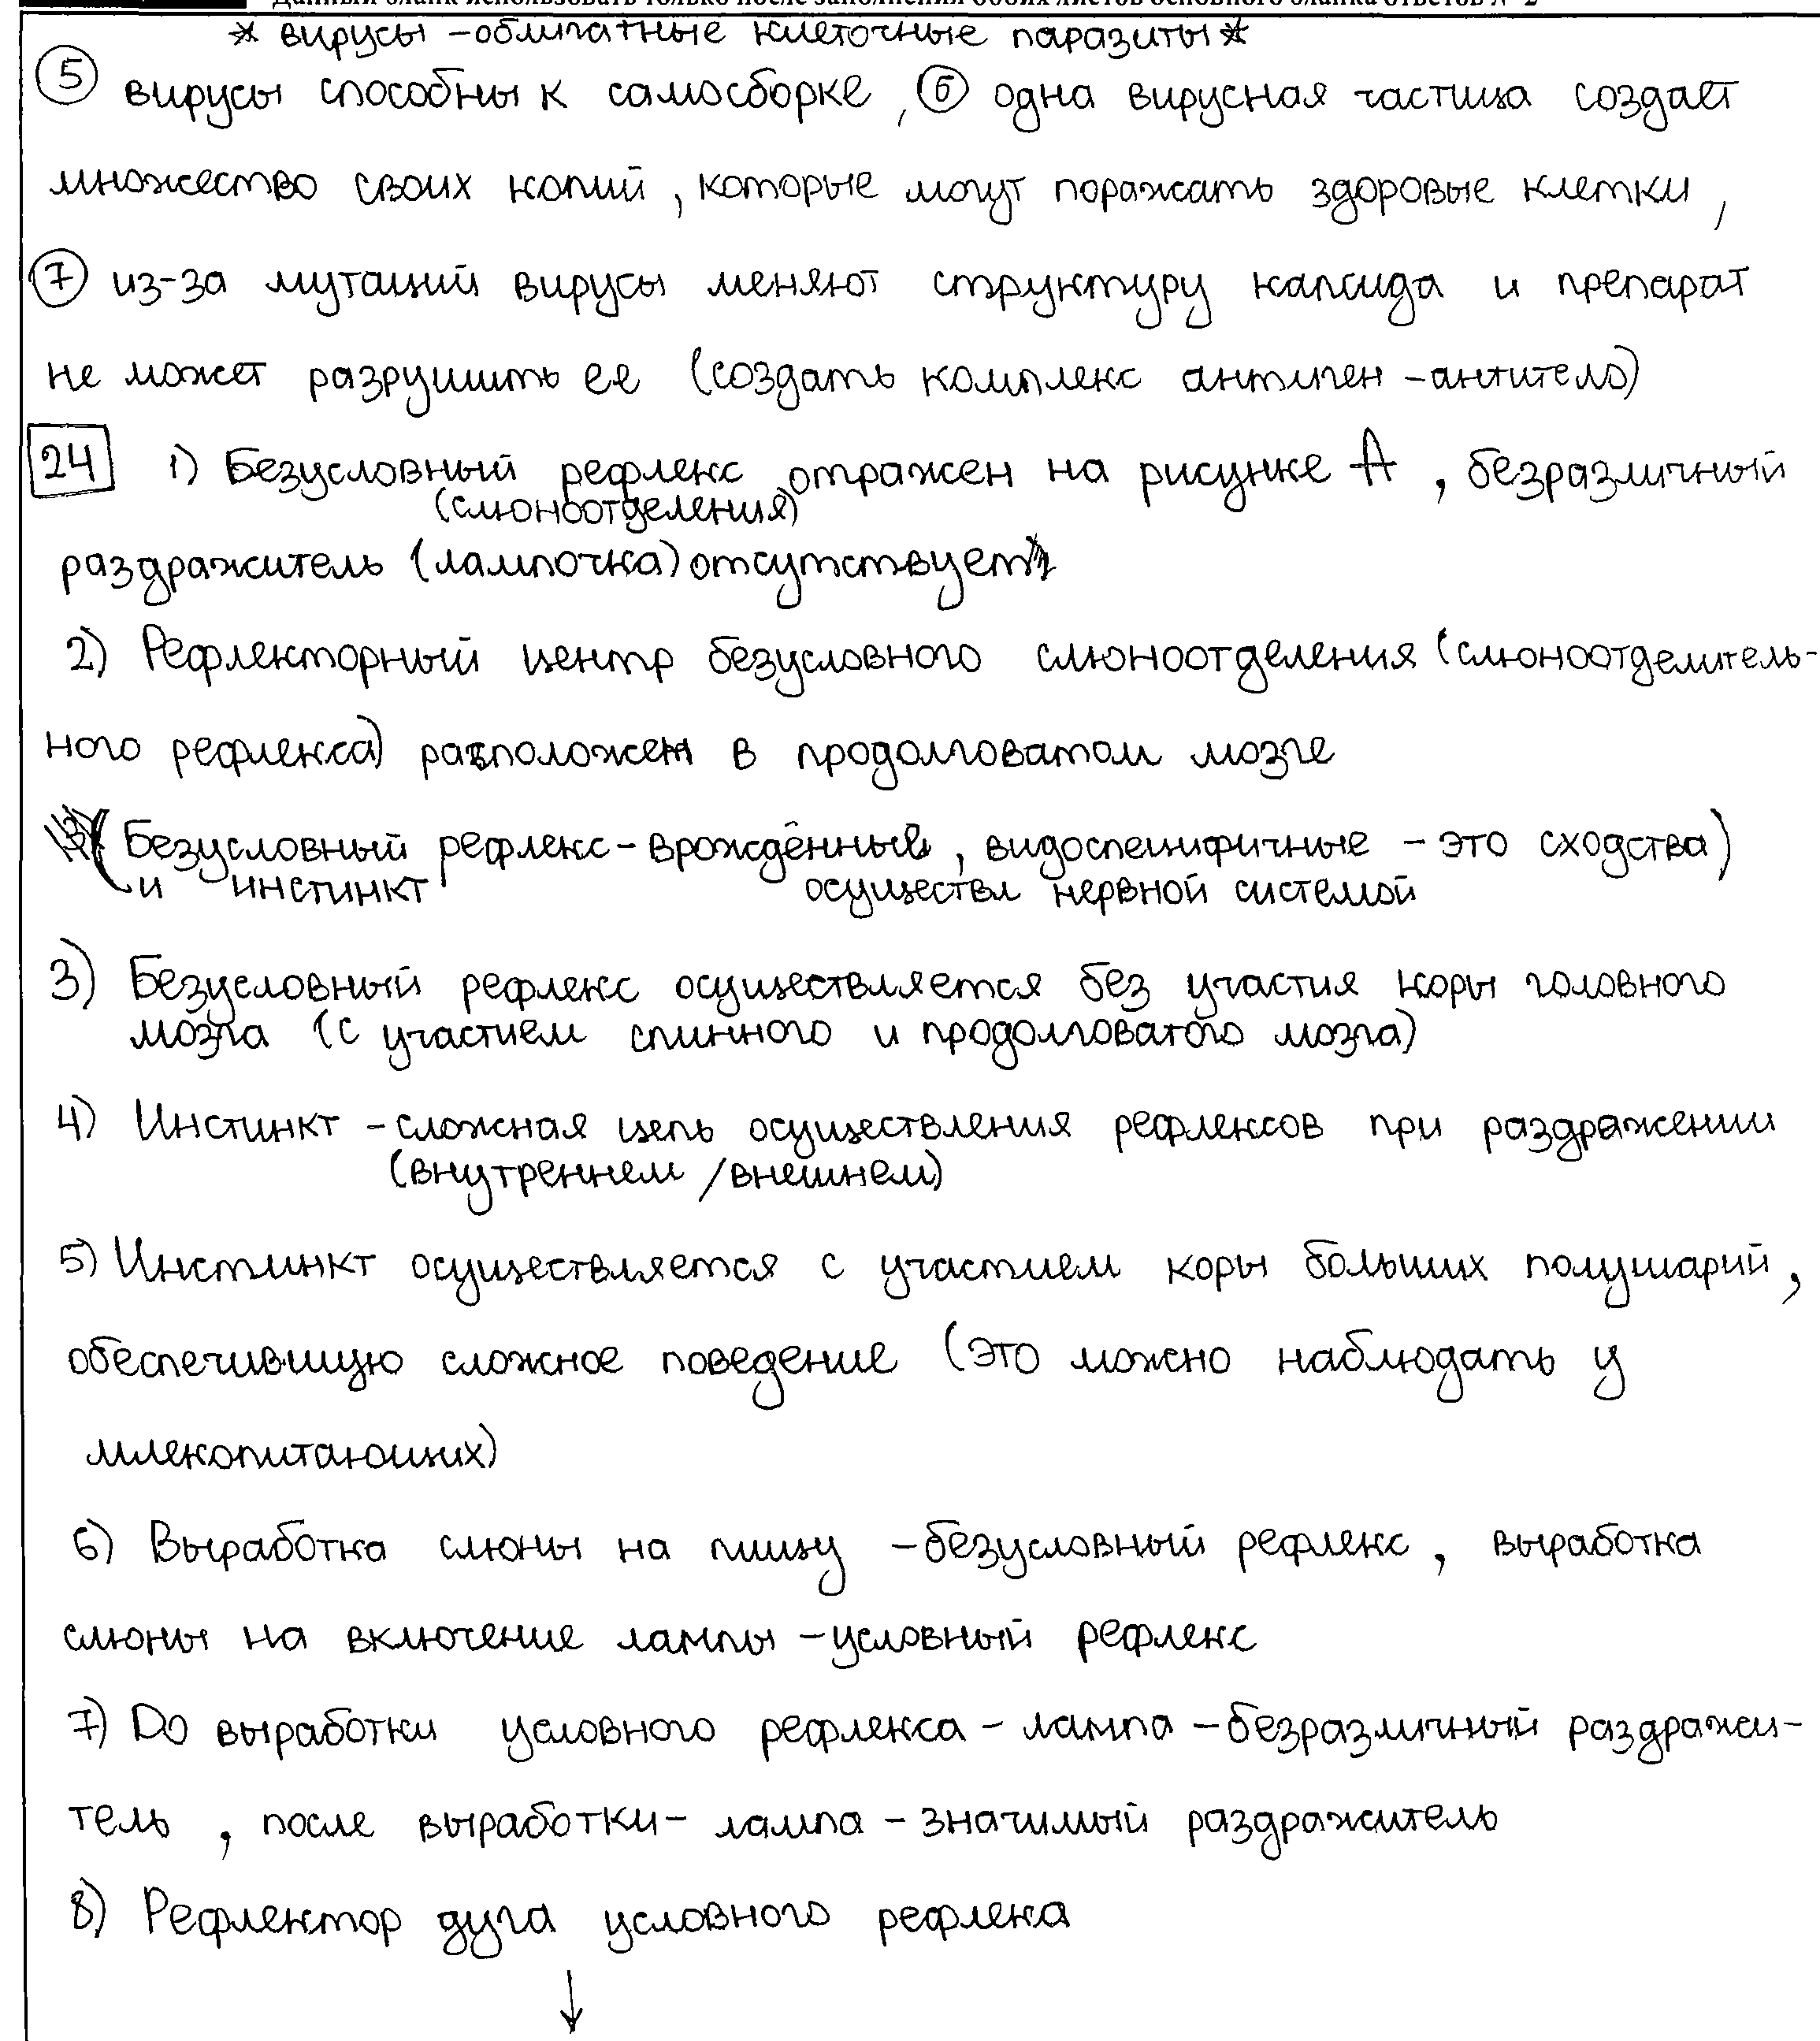 Данный бланк использовать только после заполнения обоих листов основного бланка ответов № 2
* вирусы - облигатные клеточные паразиты *
⑤ вирусы способны к самосборке, ⑥ одна вирусная частица создает
множество своих копий, которые могут поражать здоровые клетки,
⑦ из-за мутаций вирусы меняют структуру капсида и препарат
не может разрушить ее (создать комплекс антиген - антитело)
24 1) Безусловный рефлекс отражен на рисунке А, безразличный
(слюноотделения)
раздражитель (лампочка) отсутствует
2) Рефлекторный центр безусловного слюноотделения (слюноотделитель-
ного рефлекса) расположен в продолговатом мозге
(Безусловный рефлекс - врождённые, видоспецифичные - это сходства)
и инстинкт осуществл нервной системой
3) Безусловный рефлекс осуществляется без участия коры головного
мозга (с участием спинного и продолговатого мозга)
4) Инстинкт - сложная цепь осуществления рефлексов при раздражении
(внутреннем / внешнем)
5) Инстинкт осуществляется с участием коры больших полушарий,
обеспечившую сложное поведение (это можно наблюдать у
млекопитающих)
6) Выработка слюны на пищу - безусловный рефлекс, выработка
слюны на включение лампы - условный рефлекс
7) До выработки условного рефлекса - лампа - безразличный раздражи-
тель, после выработки - лампа - значимый раздражитель
8) Рефлектор дуга условного рефлека
↓